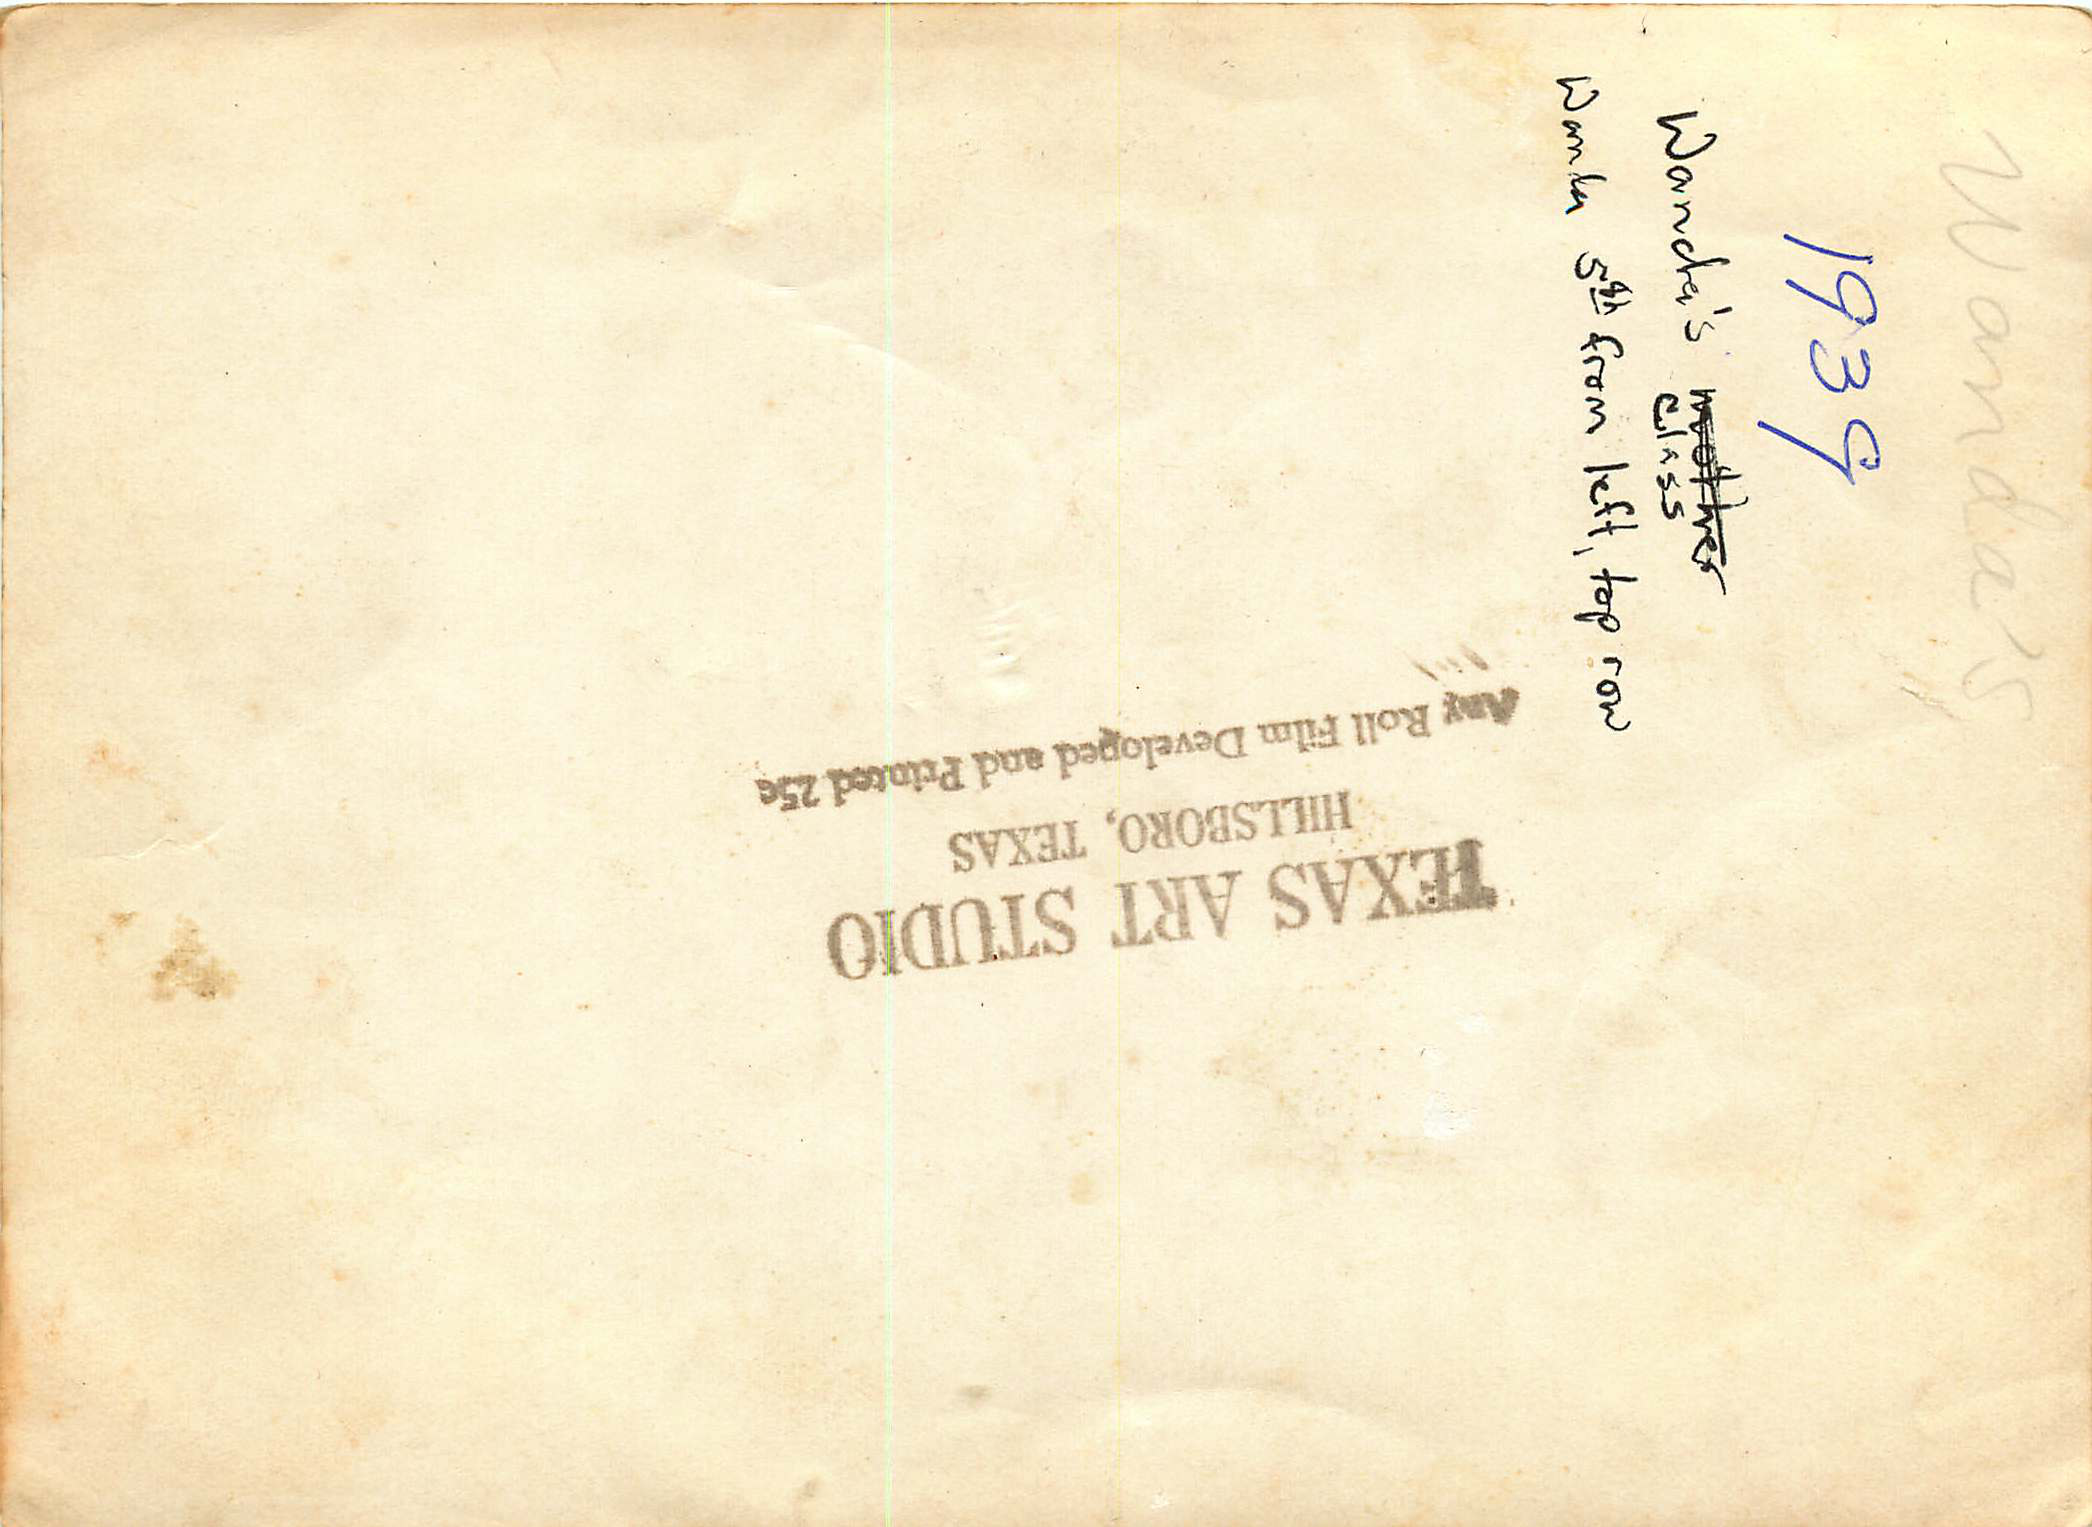 Wanda's
1939
Wanda's mother
class
Wanda 5th from left, top row
TEXAS ART STUDIO
HILLSBORO, TEXAS
Any Roll Film Developed and Printed 25c